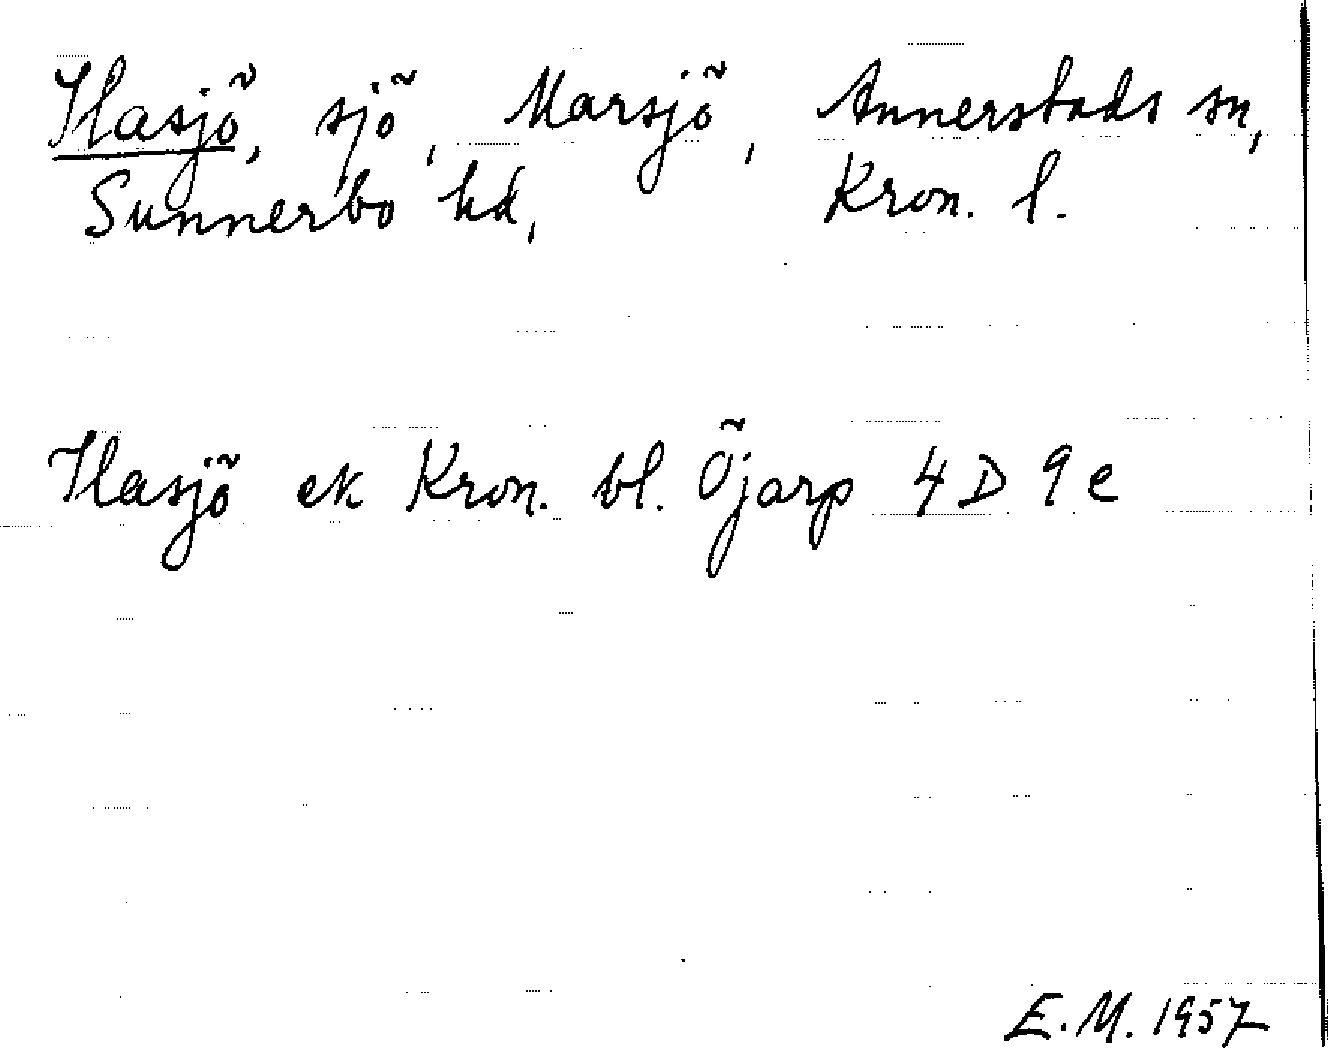 Hasjö, sjö, Marsjö, Annerstads sn,
Sunnerbo hd, Kron. l.
Hasjö ek Kron. bl. Öjarp 4D 9e
E.M. 1957